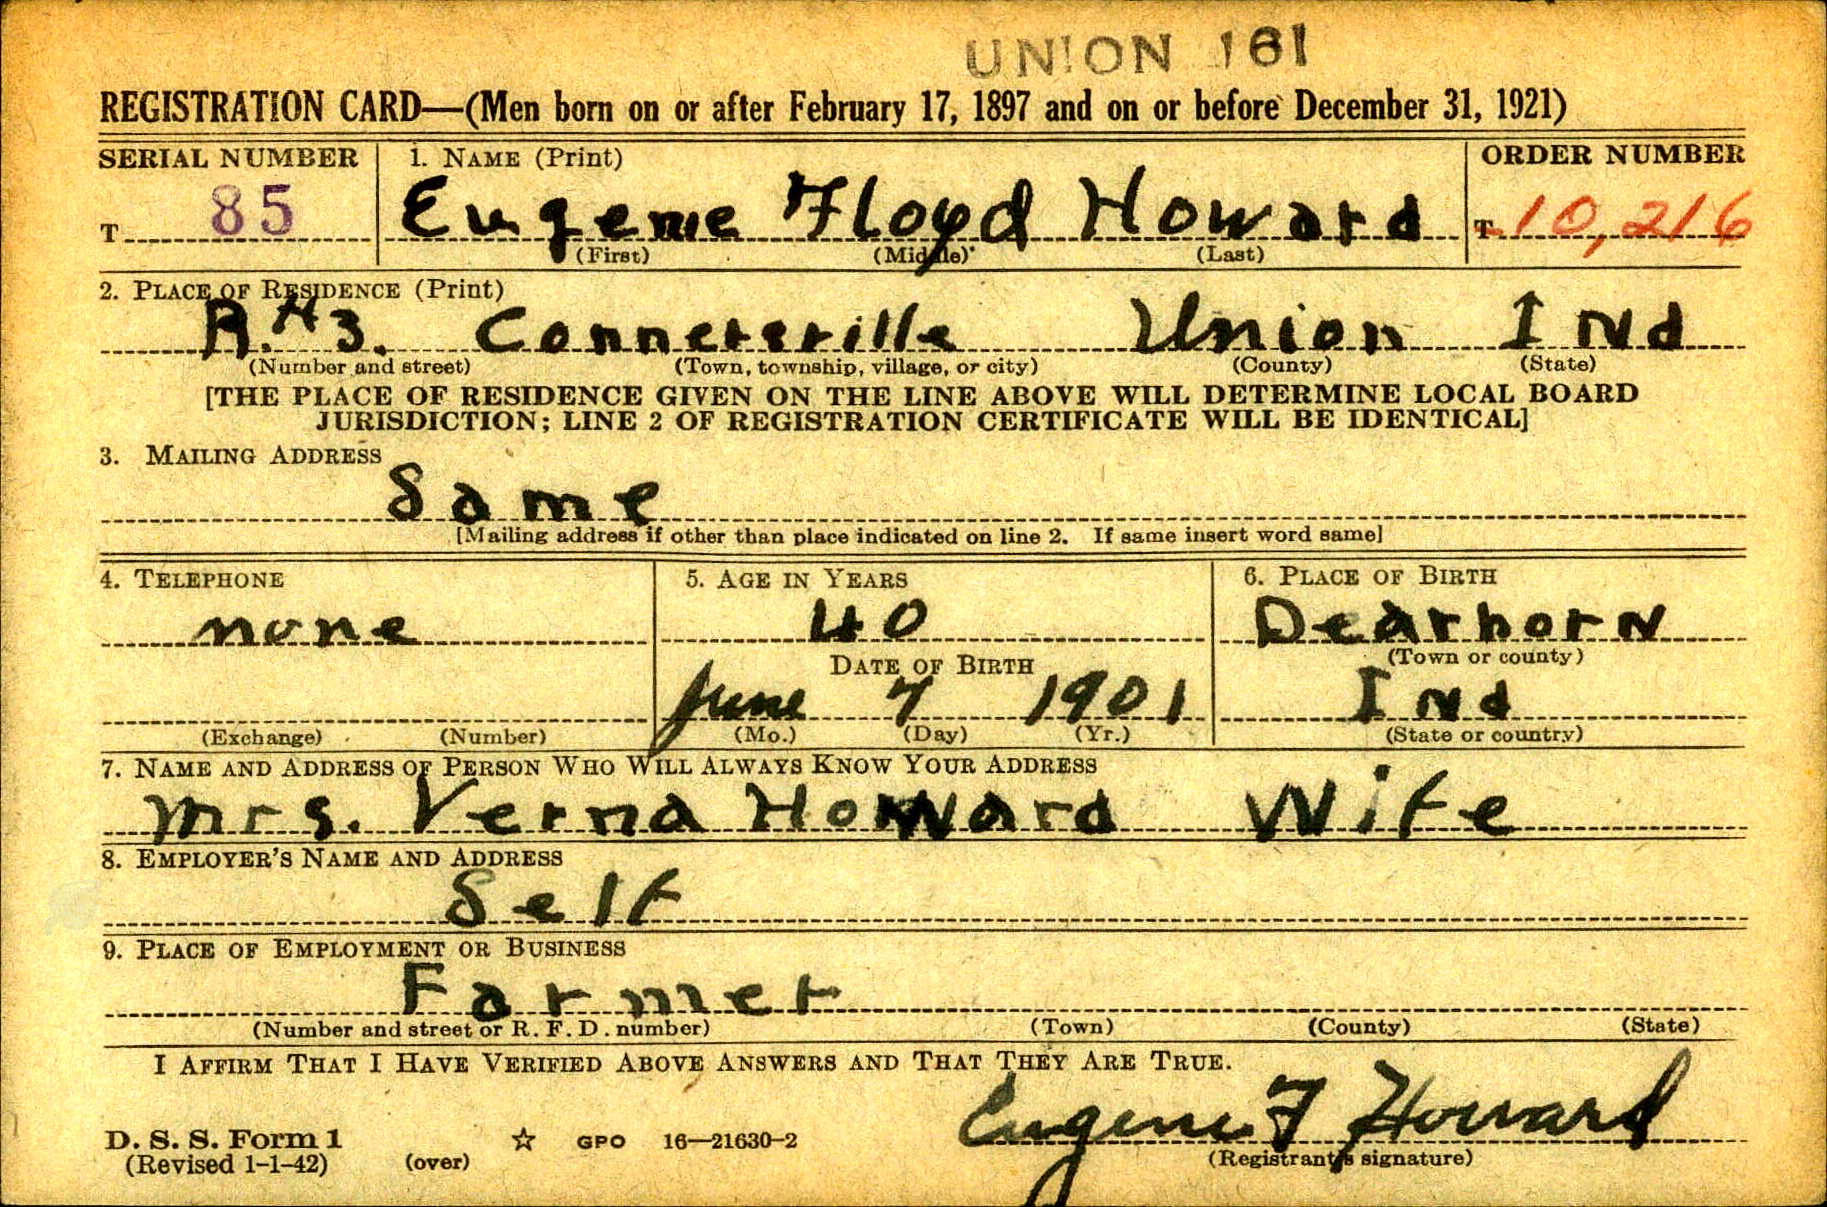 UNION 161
REGISTRATION CARD—(Men born on or after February 17, 1897 and on or before December 31, 1921)
SERIAL NUMBER 1. NAME (Print) ORDER NUMBER
T 85 Eugene Floyd Howard T 10,216
(First) (Middle) (Last)
2. PLACE OF RESIDENCE (Print)
R.#3. Connersville Union Ind
(Number and street) (Town, township, village, or city) (County) (State)
[THE PLACE OF RESIDENCE GIVEN ON THE LINE ABOVE WILL DETERMINE LOCAL BOARD
JURISDICTION; LINE 2 OF REGISTRATION CERTIFICATE WILL BE IDENTICAL]
3. MAILING ADDRESS
Same
[Mailing address if other than place indicated on line 2. If same insert word same]
4. TELEPHONE 5. AGE IN YEARS 6. PLACE OF BIRTH
none 40 Dearborn
DATE OF BIRTH (Town or county)
June 7 1901 Ind
(Exchange) (Number) (Mo.) (Day) (Yr.) (State or country)
7. NAME AND ADDRESS OF PERSON WHO WILL ALWAYS KNOW YOUR ADDRESS
Mrs. Verna Howard Wife
8. EMPLOYER'S NAME AND ADDRESS
Self
9. PLACE OF EMPLOYMENT OR BUSINESS
Farmer
(Number and street or R. F. D. number) (Town) (County) (State)
I AFFIRM THAT I HAVE VERIFIED ABOVE ANSWERS AND THAT THEY ARE TRUE.
Eugene F Howard
D. S. S. Form 1 ☆ GPO 16—21630-2
(Revised 1-1-42) (over) (Registrant's signature)